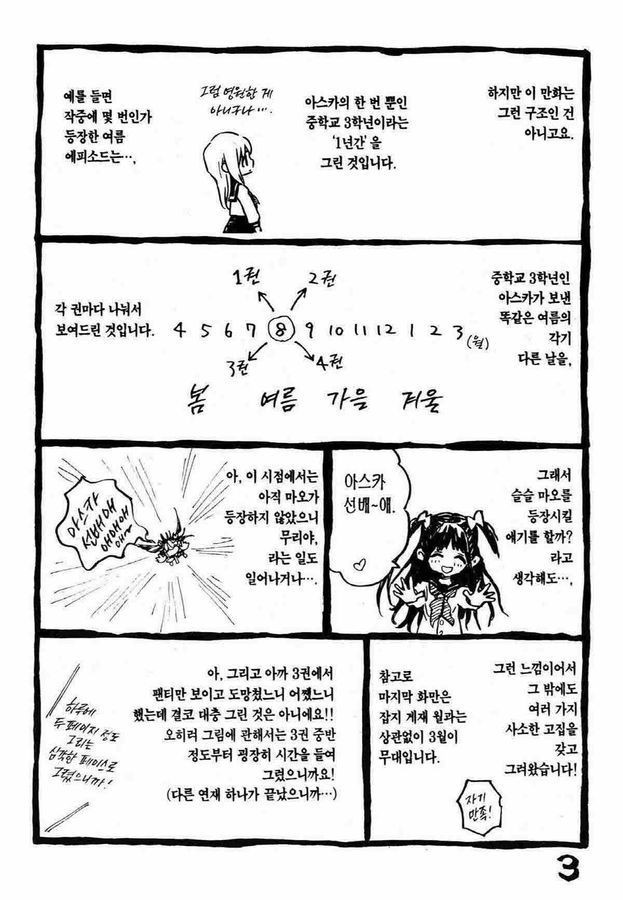 하지만 이 만화는
그런 구조인 건
아니고요.
아스카의 한 번 뿐인
중학교 3학년이라는
'1년간'을
그린 것입니다.
그럼 영원한 게
아니구나….
예를 들면
작중에 몇 번인가
등장한 여름
에피소드는…,
중학교 3학년인
아스카가 보낸
똑같은 여름의
각기
다른 날을,
1권 2권
4 5 6 7 8 9 10 11 12 1 2 3
(월)
3권 4권
봄 여름 가을 겨울
각 권마다 나눠서
보여드린 것입니다.
그래서
슬슬 마오를
등장시킬
얘기를 할까?
라고
생각해도…,
아스카
선배~애.
아, 이 시점에서는
아직 마오가
등장하지 않았으니
무리야,
라는 일도
일어나거나….
아스카
선배애
애애애
애~
그런 느낌이어서
그 밖에도
여러 가지
사소한 고집을
갖고
그려왔습니다!
자기
만족!
참고로
마지막 화만은
잡지 게재 월과는
상관없이 3월이
무대입니다.
아, 그리고 아까 3권에서
팬티만 보이고 도망쳤느니 어쨌느니
했는데 결코 대충 그린 것은 아니에요!!
오히려 그림에 관해서는 3권 중반
정도부터 굉장히 시간을 들여
그렸으니까요!
(다른 연재 하나가 끝났으니까…)
하루에
두 페이지 정도
그리는
심각한 페이스로
그렸으니까!
3